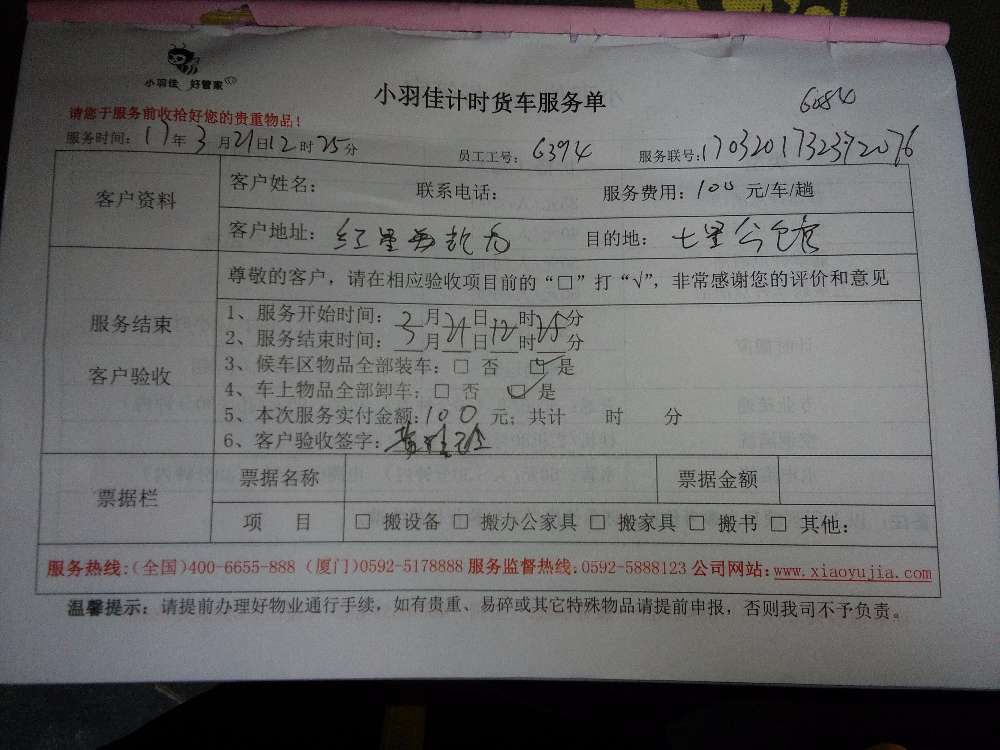 小羽佳 好管家
小羽佳计时货车服务单
6084
请您于服务前收拾好您的贵重物品！
服务时间：17年3月21日12时25分 员工工号：6394 服务联号：1703201732372076
客户资料
客户姓名： 联系电话： 服务费用：100 元/车/趟
客户地址：红星 目的地：七星公馆
服务结束
客户验收
尊敬的客户，请在相应验收项目前的“□”打“√”，非常感谢您的评价和意见
1、服务开始时间：3月21日12时25分
2、服务结束时间：__月__日__时__分
3、候车区物品全部装车：□ 否 ☑ 是
4、车上物品全部卸车：□ 否 ☑ 是
5、本次服务实付金额：100 元；共计 时 分
6、客户验收签字：
票据栏
票据名称 票据金额
项 目 □ 搬设备 □ 搬办公家具 □ 搬家具 □ 搬书 □ 其他：
服务热线：（全国）400-6655-888 （厦门）0592-5178888 服务监督热线：0592-5888123 公司网站：www.xiaoyujia.com
温馨提示：请提前办理好物业通行手续，如有贵重、易碎或其它特殊物品请提前申报，否则我司不予负责。